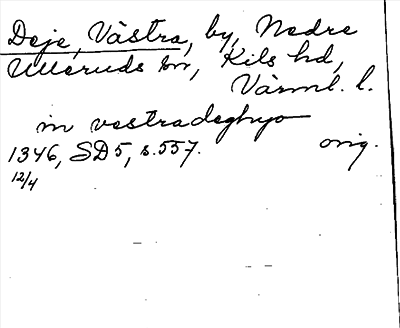 Deje, Västra, by, Nedre
Ulleruds sn, Kils hd,
Värml. l.
in vestradeghyo
1346, SD 5, s. 557. orig.
12/4